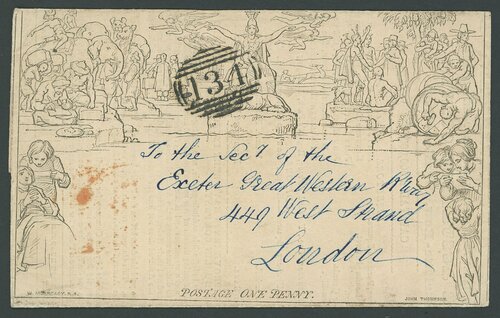 134
To the Secy of the
Exeter Great Western Rway
449 West Strand
London
W. MULREADY. R.A.
POSTAGE ONE PENNY.
JOHN THOMPSON.